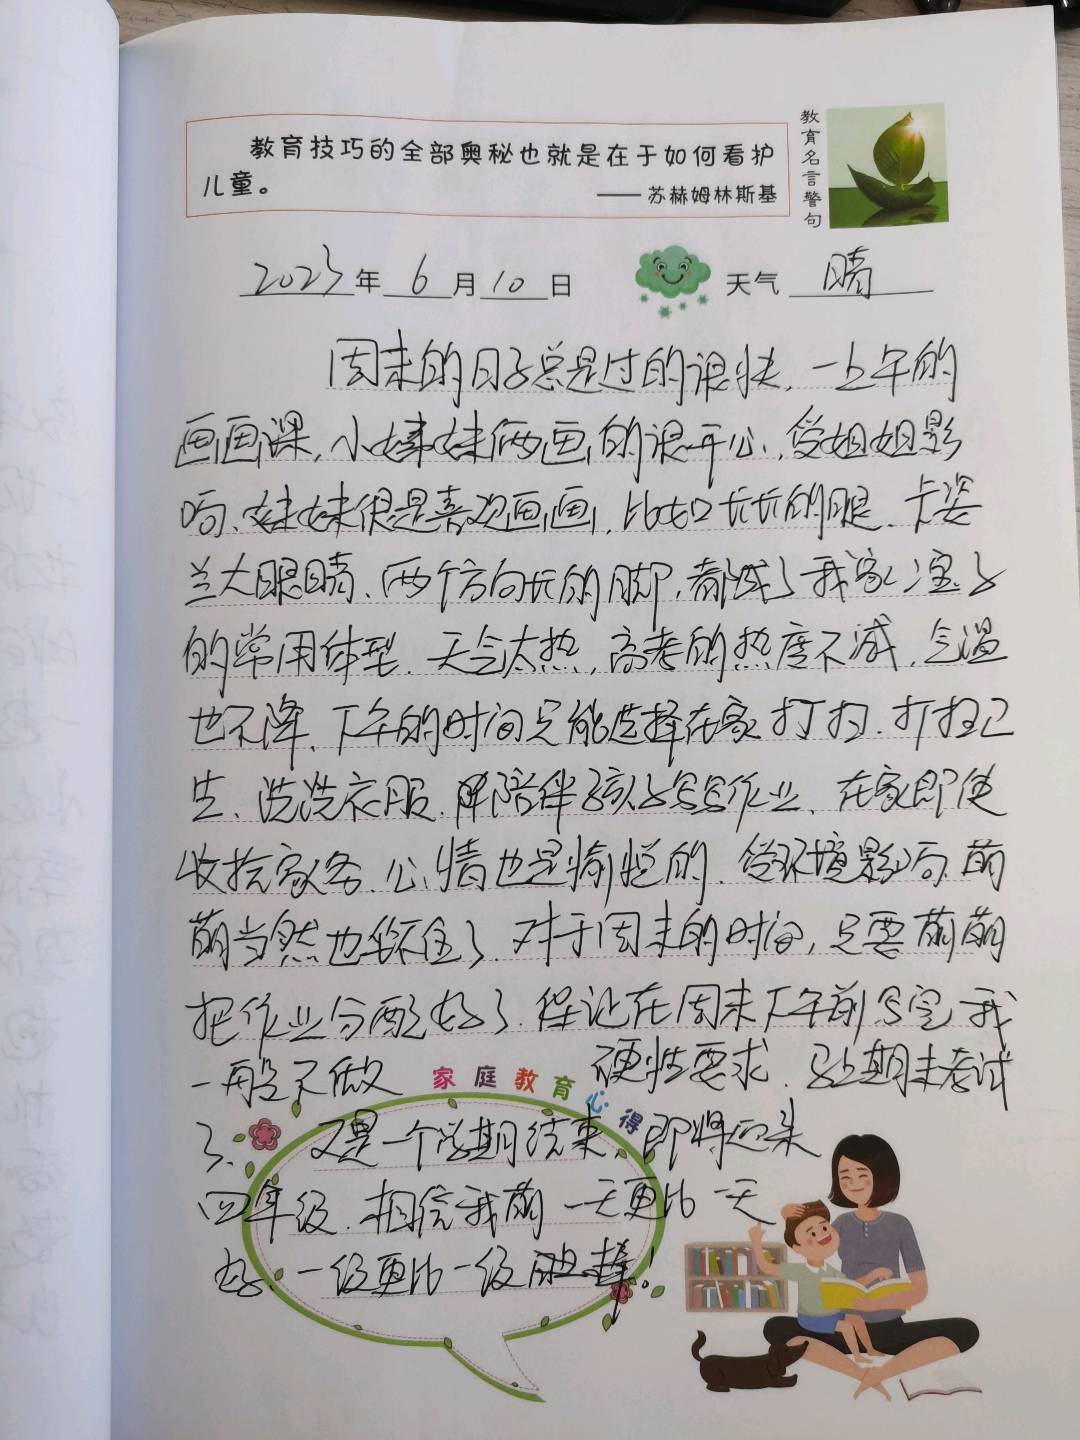 教育技巧的全部奥秘也就是在于如何看护
儿童。
——苏赫姆林斯基
教育名言警句
2023年6月10日 天气 晴
周末的日子总是过的很快,一上午的
画画课,小妹妹俩画的很开心,受姐姐影
响、妹妹很是喜欢画画,比如长长的腿、卡姿
兰大眼睛、两个方向长的脚,都成了我家宝子
的常用体型.天气太热,高考的热度不减,气温
也不降、下午的时间只能选择在家打扫.打扫卫
生、洗洗衣服.陪伴孩子写写作业、在家即使
收拾家务、心情也是愉悦的、受环境影响,萌
萌当然也坐不住了.对于周末的时间,只要萌萌
把作业分配好了.保证在周末下午前写完,我
一般不做 硬性要求.马上期末考试
家庭教育心得
了、又是一个学期结束,即将迎来
四年级.相信我萌一天更比一天
好、一级更比一级棒!